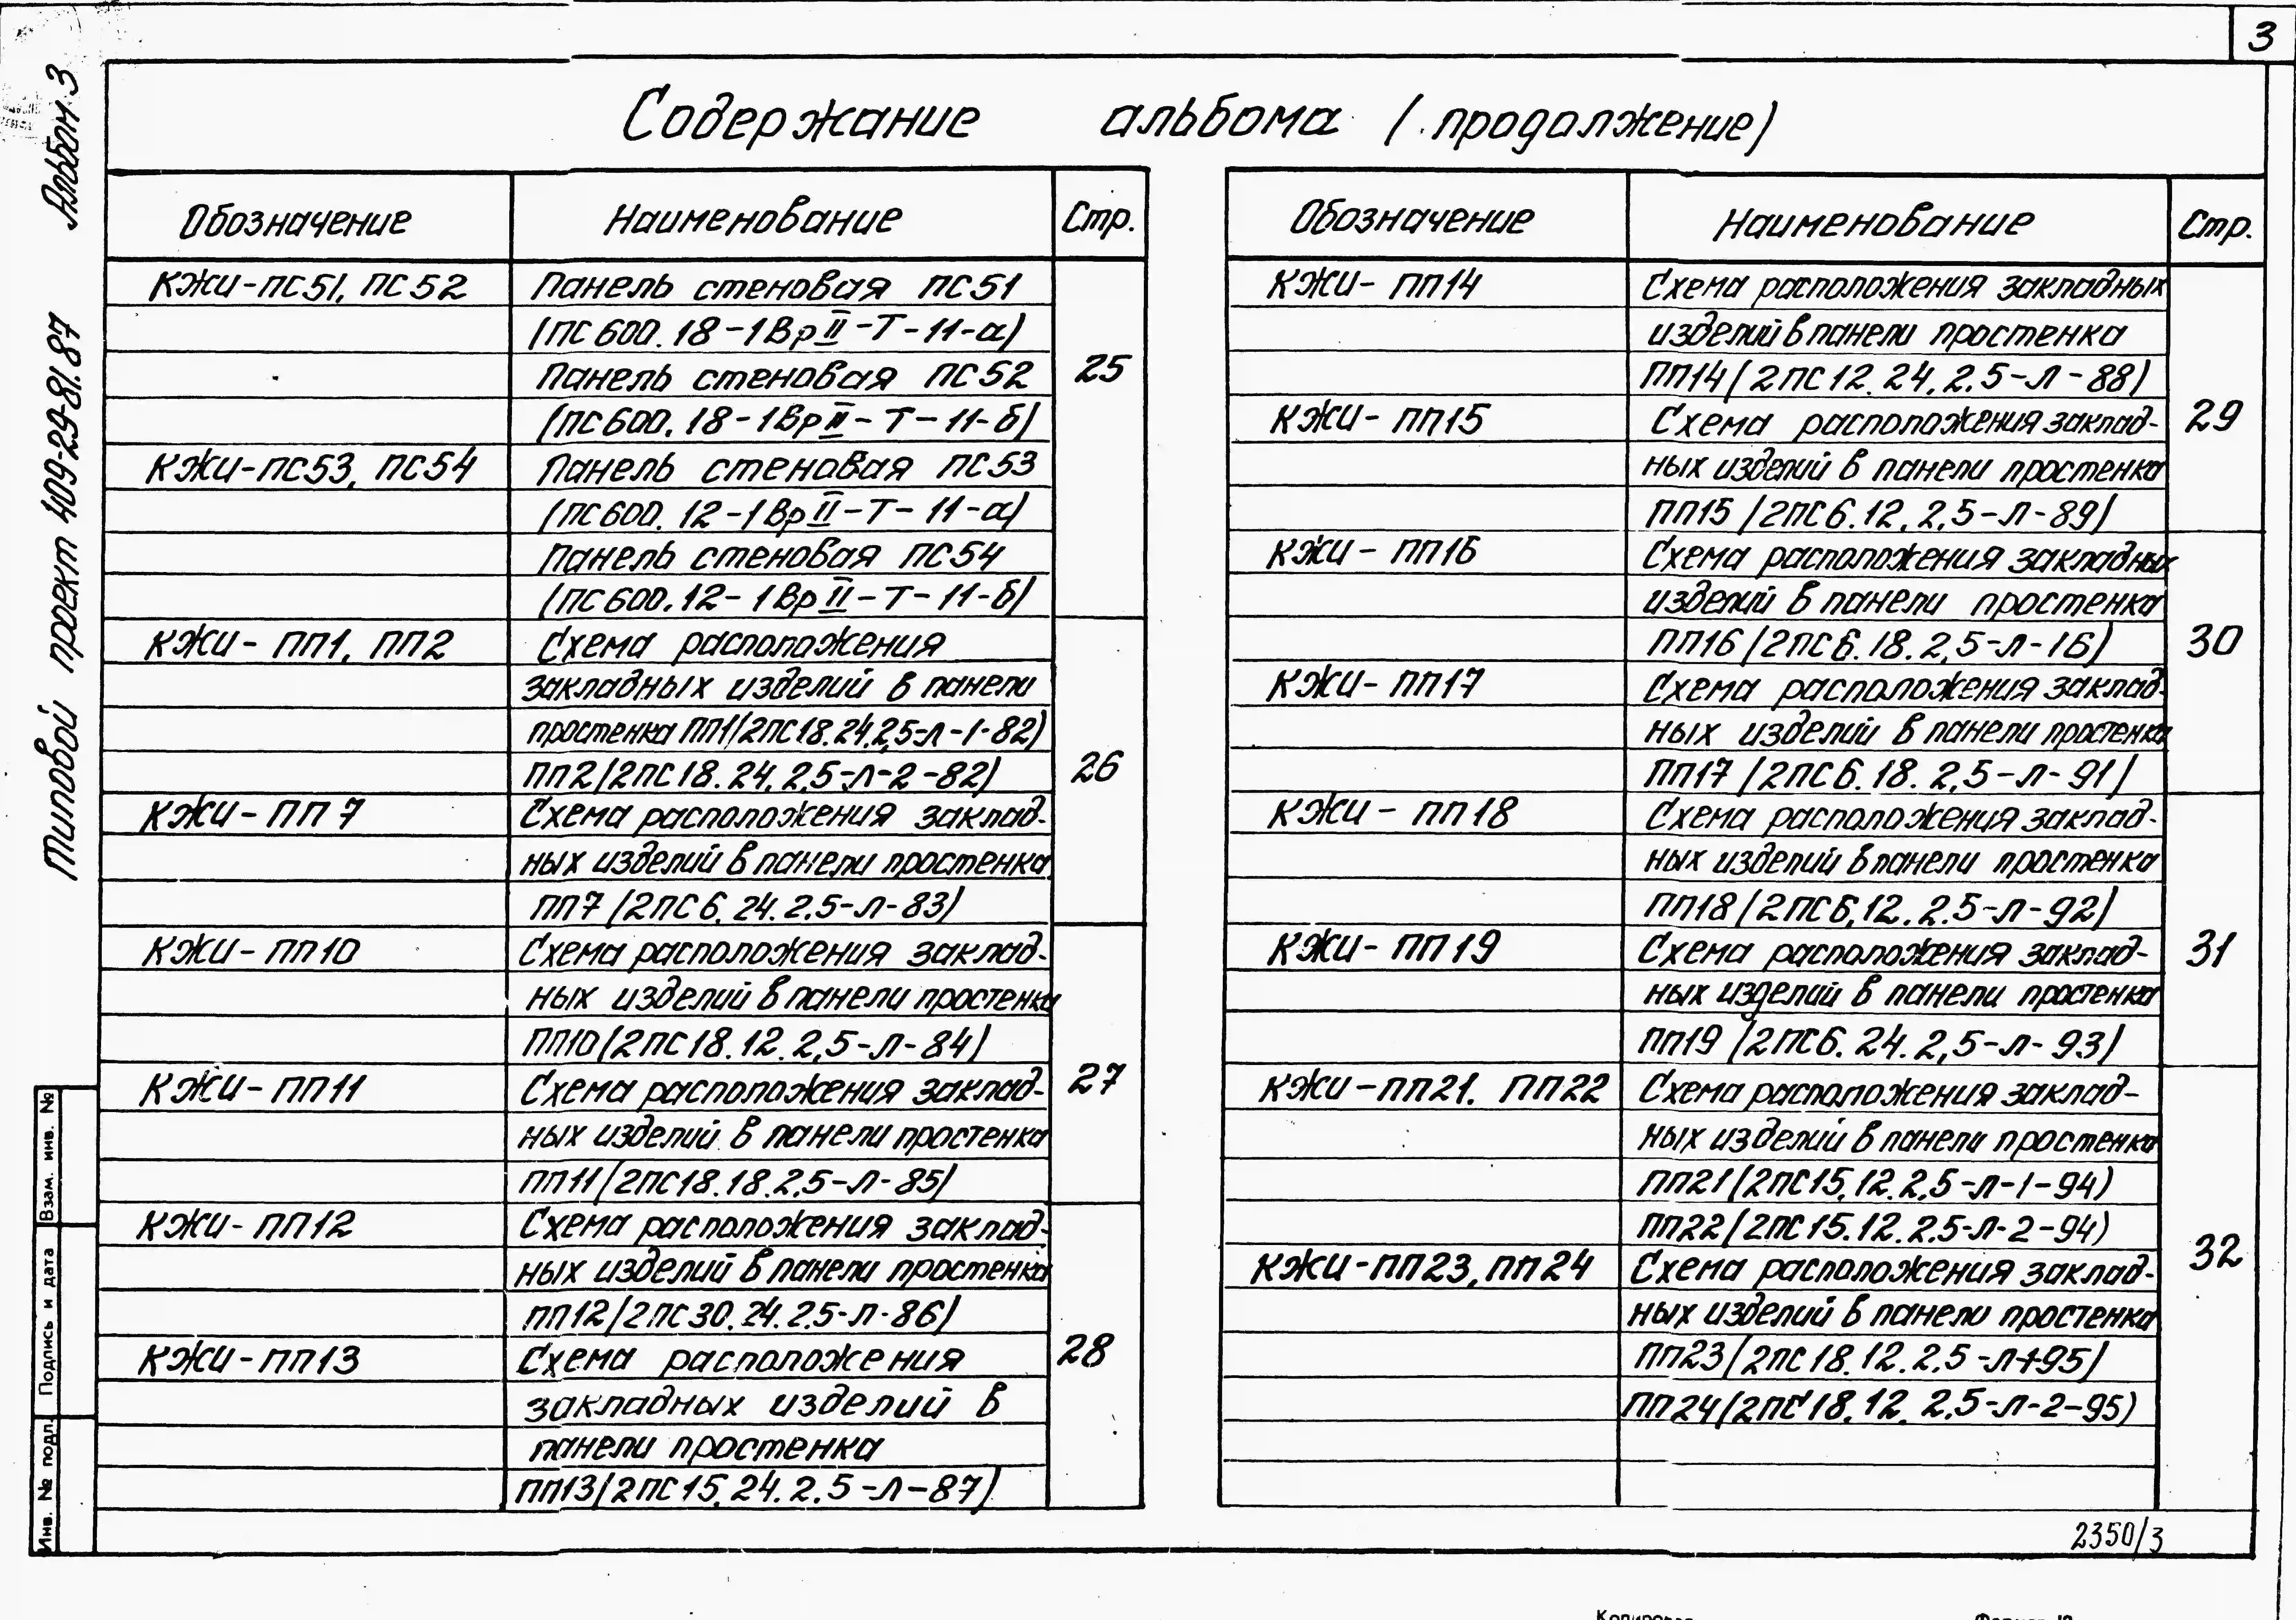 3
Содержание альбома (продолжение)
Альбом 3
Типовой проект 409-29-81.87
Обозначение Наименование Стр.
КЖИ-ПС51, ПС52 Панель стеновая ПС51
(ПС600.18-1ВрII-Т-11-а)
Панель стеновая ПС52 25
(ПС600.18-1ВрII-Т-11-б)
КЖИ-ПС53, ПС54 Панель стеновая ПС53
(ПС600.12-1ВрII-Т-11-а)
Панель стеновая ПС54
(ПС600.12-1ВрII-Т-11-б)
КЖИ-ПП1, ПП2 Схема расположения
закладных изделий в панели
простенка ПП1(2ПС18.24.2,5-Л-1-82)
ПП2(2ПС18.24.2,5-Л-2-82) 26
КЖИ-ПП7 Схема расположения заклад-
ных изделий в панели простенка
ПП7(2ПС6.24.2.5-Л-83)
КЖИ-ПП10 Схема расположения заклад-
ных изделий в панели простенка
ПП10(2ПС18.12.2,5-Л-84)
КЖИ-ПП11 Схема расположения заклад- 27
ных изделий в панели простенка
ПП11(2ПС18.18.2,5-Л-85)
КЖИ-ПП12 Схема расположения заклад-
ных изделий в панели простенка
ПП12(2ПС30.24.2.5-Л-86)
КЖИ-ПП13 Схема расположения 28
закладных изделий в
панели простенка
ПП13(2ПС15.24.2.5-Л-87)
Обозначение Наименование Стр.
КЖИ-ПП14 Схема расположения закладных
изделий в панели простенка
ПП14(2ПС12.24.2.5-Л-88)
КЖИ-ПП15 Схема расположения заклад- 29
ных изделий в панели простенка
ПП15(2ПС6.12.2,5-Л-89)
КЖИ-ПП16 Схема расположения закладных
изделий в панели простенка
ПП16(2ПС6.18.2,5-Л-16) 30
КЖИ-ПП17 Схема расположения заклад-
ных изделий в панели простенка
ПП17(2ПС6.18.2,5-Л-91)
КЖИ-ПП18 Схема расположения заклад-
ных изделий в панели простенка
ПП18(2ПС6.12.2.5-Л-92)
КЖИ-ПП19 Схема расположения заклад- 31
ных изделий в панели простенка
ПП19(2ПС6.24.2,5-Л-93)
КЖИ-ПП21, ПП22 Схема расположения заклад-
ных изделий в панели простенка
ПП21(2ПС15.12.2,5-Л-1-94)
ПП22(2ПС15.12.2.5-Л-2-94)
КЖИ-ПП23, ПП24 Схема расположения заклад- 32
ных изделий в панели простенка
ПП23(2ПС18.12.2,5-Л-1-95)
ПП24(2ПС18.12.2,5-Л-2-95)
Взам. инв. №
Подпись и дата
Инв. № подл.
2350/3